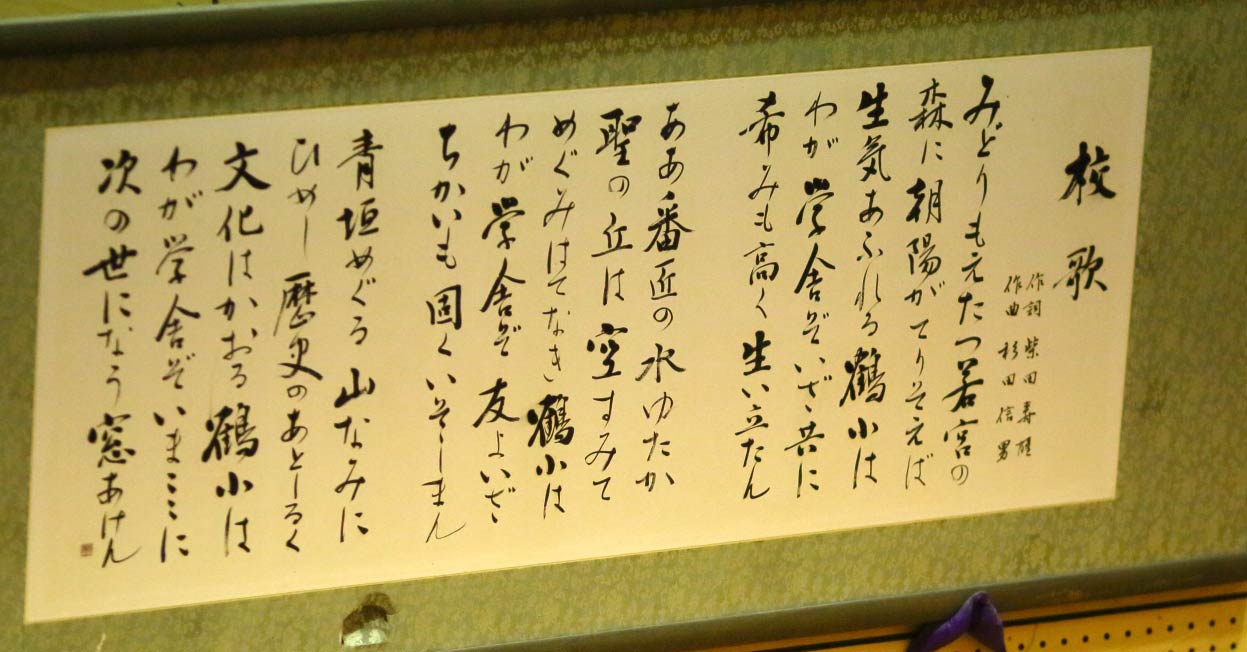 校歌
作詞 柴田
作曲 杉田信男
みどりもえたつ若宮の
森に朝陽がてりそえば
生気あふれる鶴小は
わが学舎ぞいざ共に
希みも高く生い立たん
ああ番匠の水ゆたか
聖の丘は空すみて
めぐみはてなき鶴小は
わが学舎ぞ友よいざ
ちかいも固くいそしまん
青垣めぐる山なみに
ひめし歴史のあとしるく
文化はかおる鶴小は
わが学舎ぞいまここに
次の世になう窓あけん